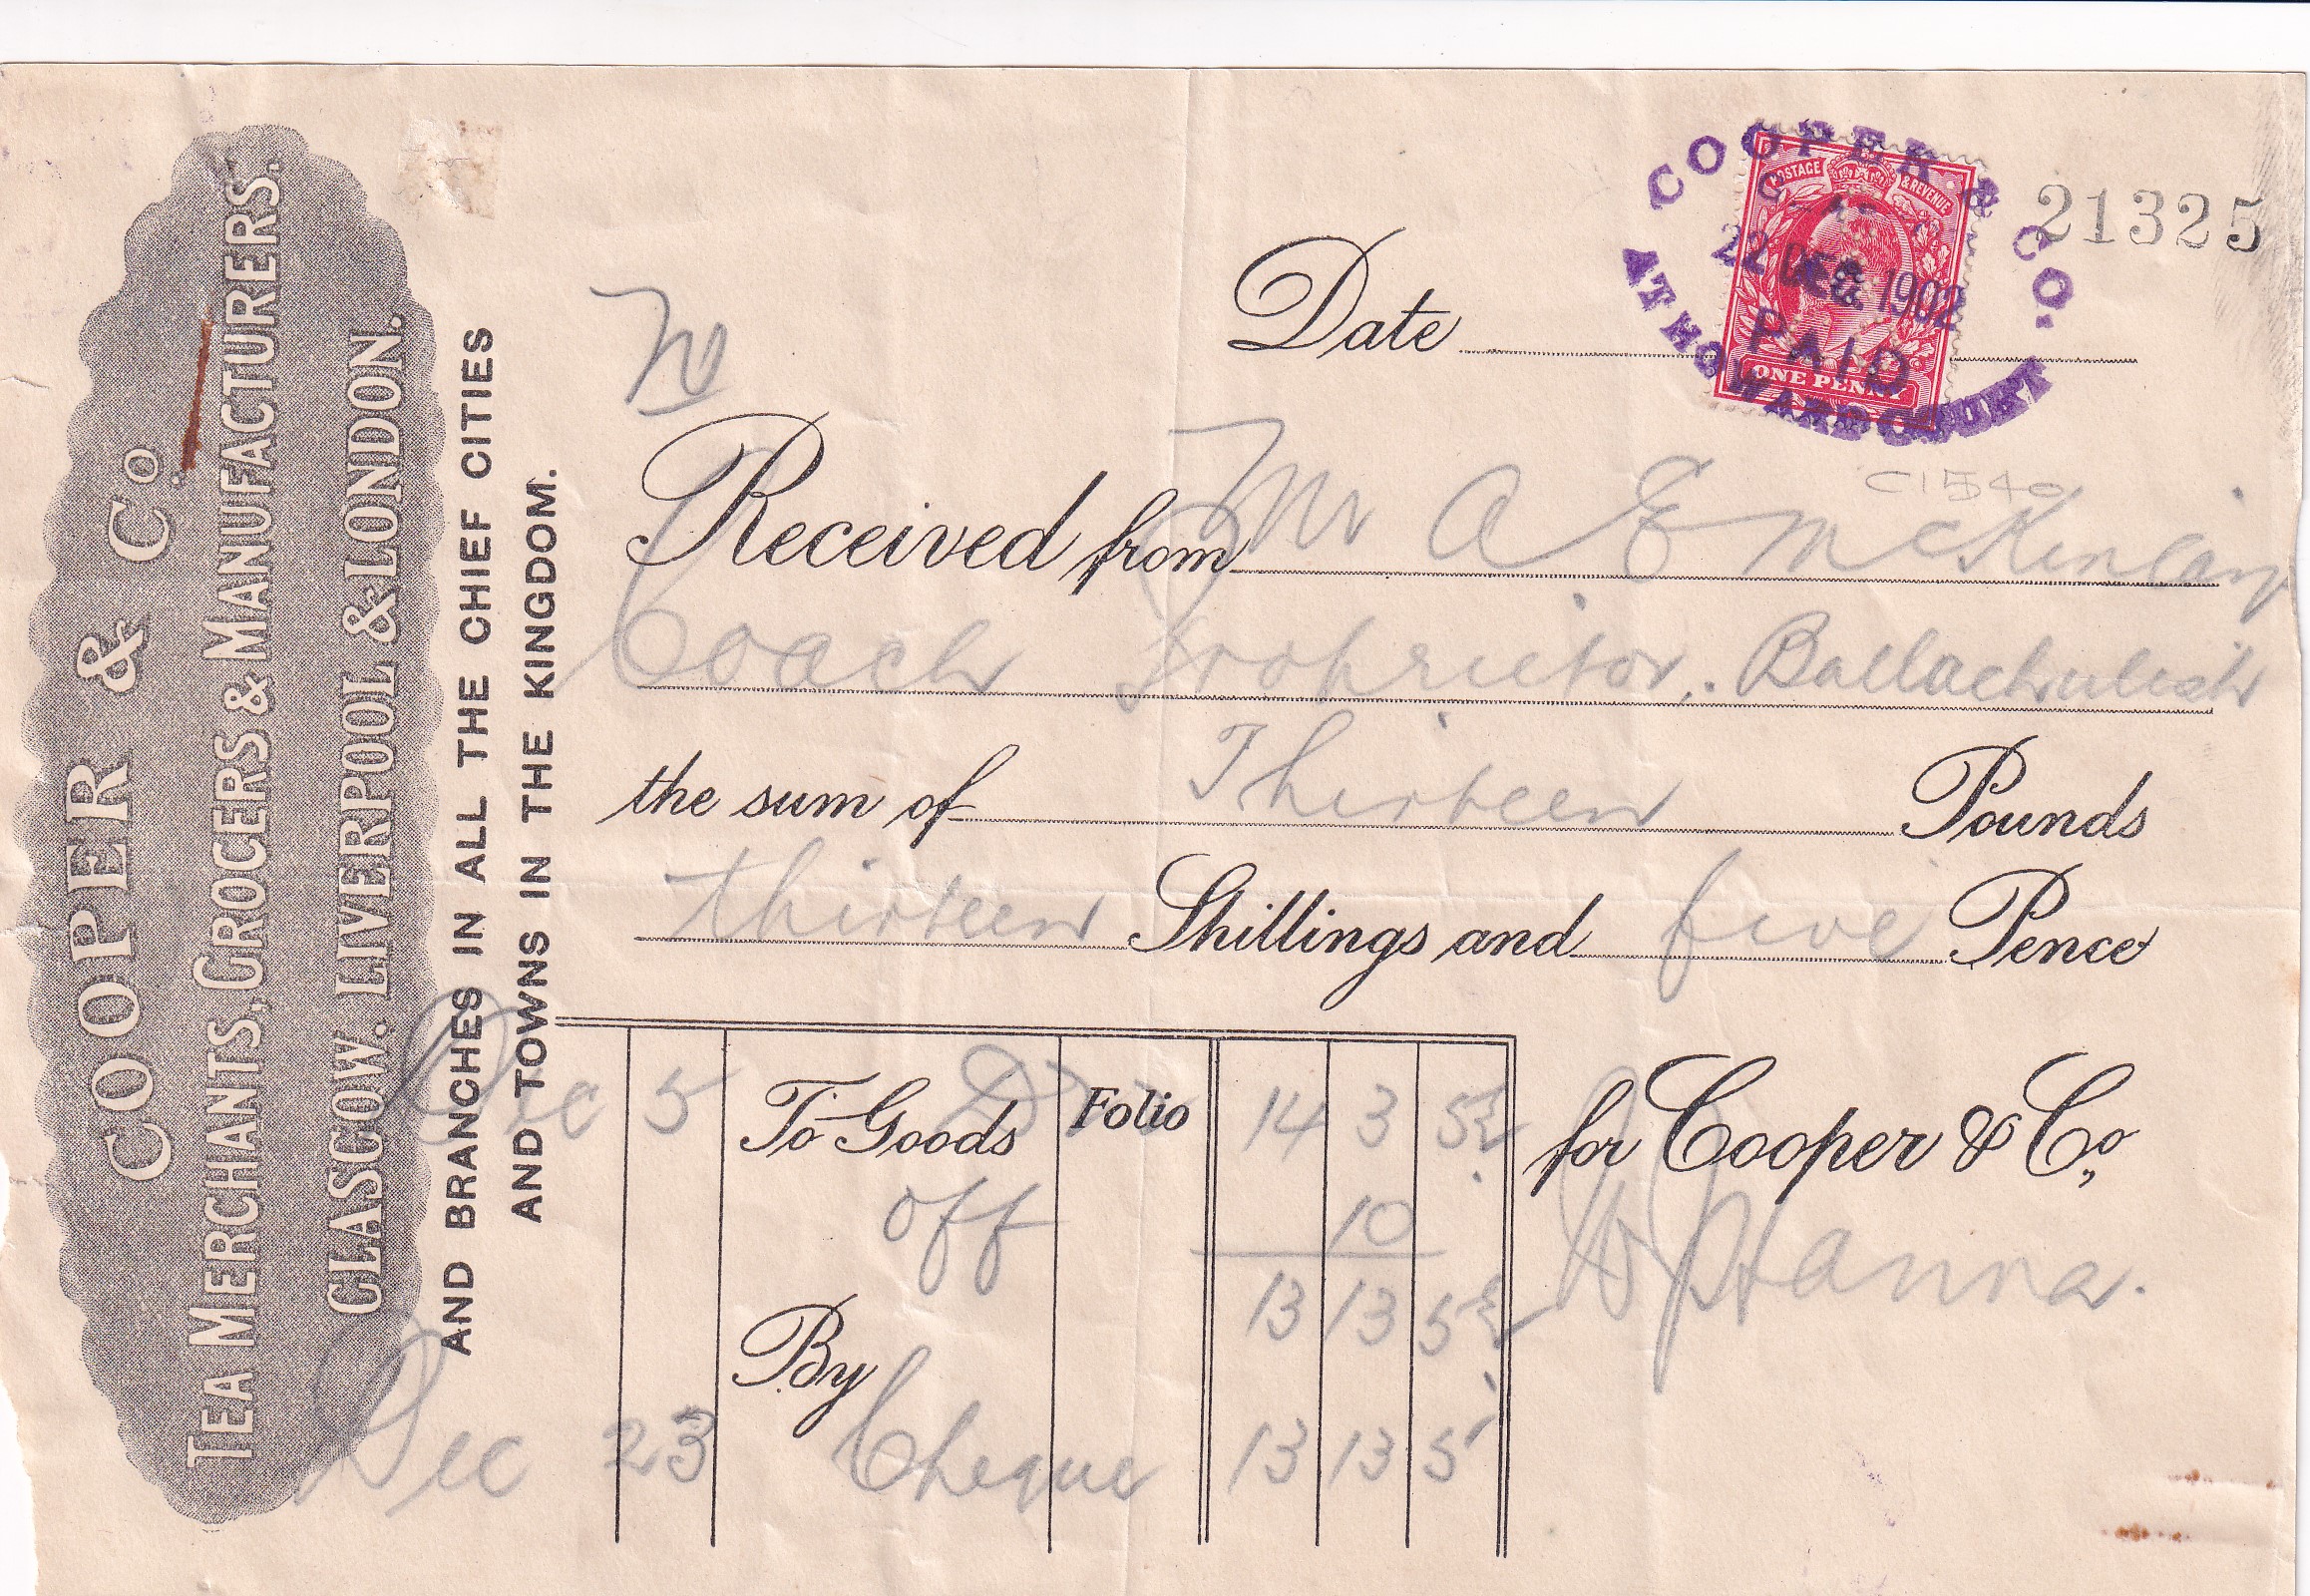 COOPER & Co
TEA MERCHANTS, GROCERS & MANUFACTURERS.
GLASGOW. LIVERPOOL & LONDON.
AND BRANCHES IN ALL THE CHIEF CITIES
AND TOWNS IN THE KINGDOM.
21325
COOPER & CO.
POSTAGE & REVENUE
22 DEC 1902
PAID
ONE PENNY
AT HOWARD
Date
C1540
Received from Mr A E McKinlay
Coach Proprietor, Ballachulish
the sum of Thirteen Pounds
thirteen Shillings and five Pence
Dec 5 To Goods Folio 14 3 5½
off 10
13 13 5½
By
Dec 23 Cheque 13 13 5
for Cooper & Co.,
Hanna.